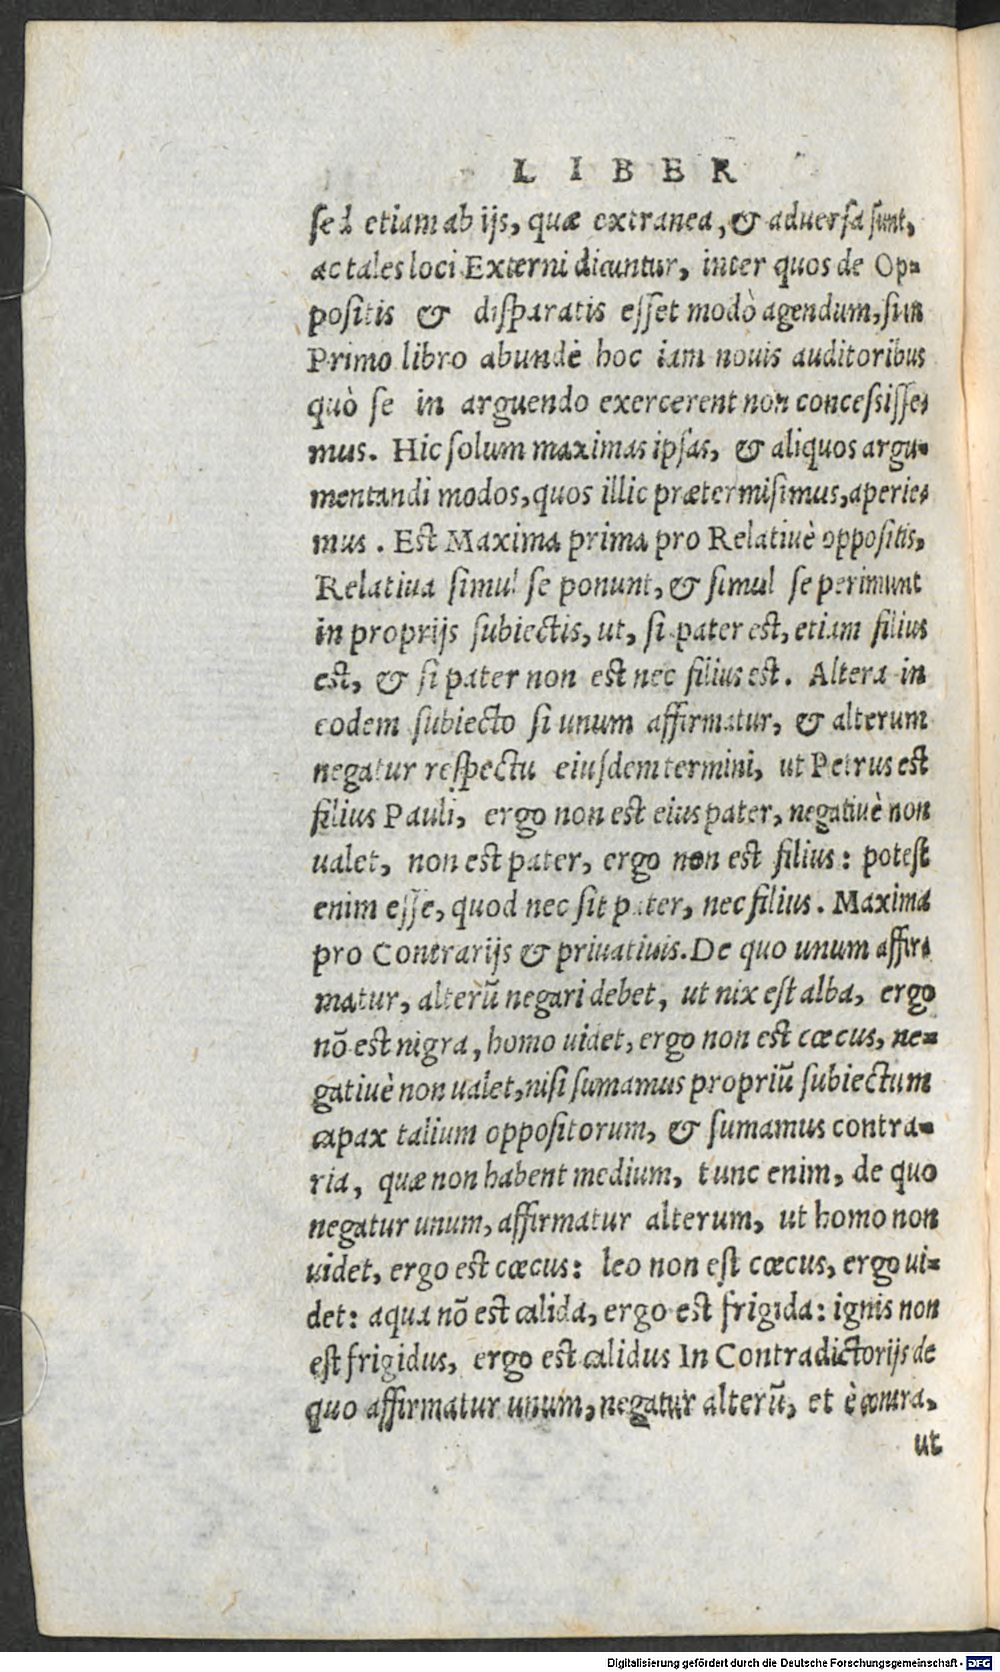 LIBER
sed etiam ab ijs, quæ extranea, & aduersa sunt,
ac tales loci Externi dicuntur, inter quos de Op-
positis & disparatis esset modò agendum, si in
Primo libro abundè hoc iam nouis auditoribus
quò se in arguendo exercerent non concessisse-
mus. Hic solum maximas ipsas, & aliquos argu-
mentandi modos, quos illic prætermisimus, aperie-
mus. Est Maxima prima pro Relatiuè oppositis,
Relatiua simul se ponunt, & simul se perimunt
in proprijs subiectis, ut, si pater est, etiam filius
est, & si pater non est nec filius est. Altera in
eodem subiecto si unum affirmatur, & alterum
negatur respectu eiusdem termini, ut Petrus est
filius Pauli, ergo non est eius pater, negatiuè non
ualet, non est pater, ergo non est filius: potest
enim esse, quod nec sit pater, nec filius. Maxima
pro Contrarijs & priuatiuis. De quo unum affir-
matur, alterũ negari debet, ut nix est alba, ergo
nõ est nigra, homo uidet, ergo non est cæcus, ne-
gatiuè non ualet, nisi sumamus propriũ subiectum
capax talium oppositorum, & sumamus contra-
ria, quæ non habent medium, tunc enim, de quo
negatur unum, affirmatur alterum, ut homo non
uidet, ergo est cæcus: leo non est cæcus, ergo ui-
det: aqua nõ est calida, ergo est frigida: ignis non
est frigidus, ergo est calidus In Contradictorijs de
quo affirmatur unum, negatur alterũ, et è contra,
ut
Digitalisierung gefördert durch die Deutsche Forschungsgemeinschaft - DFG